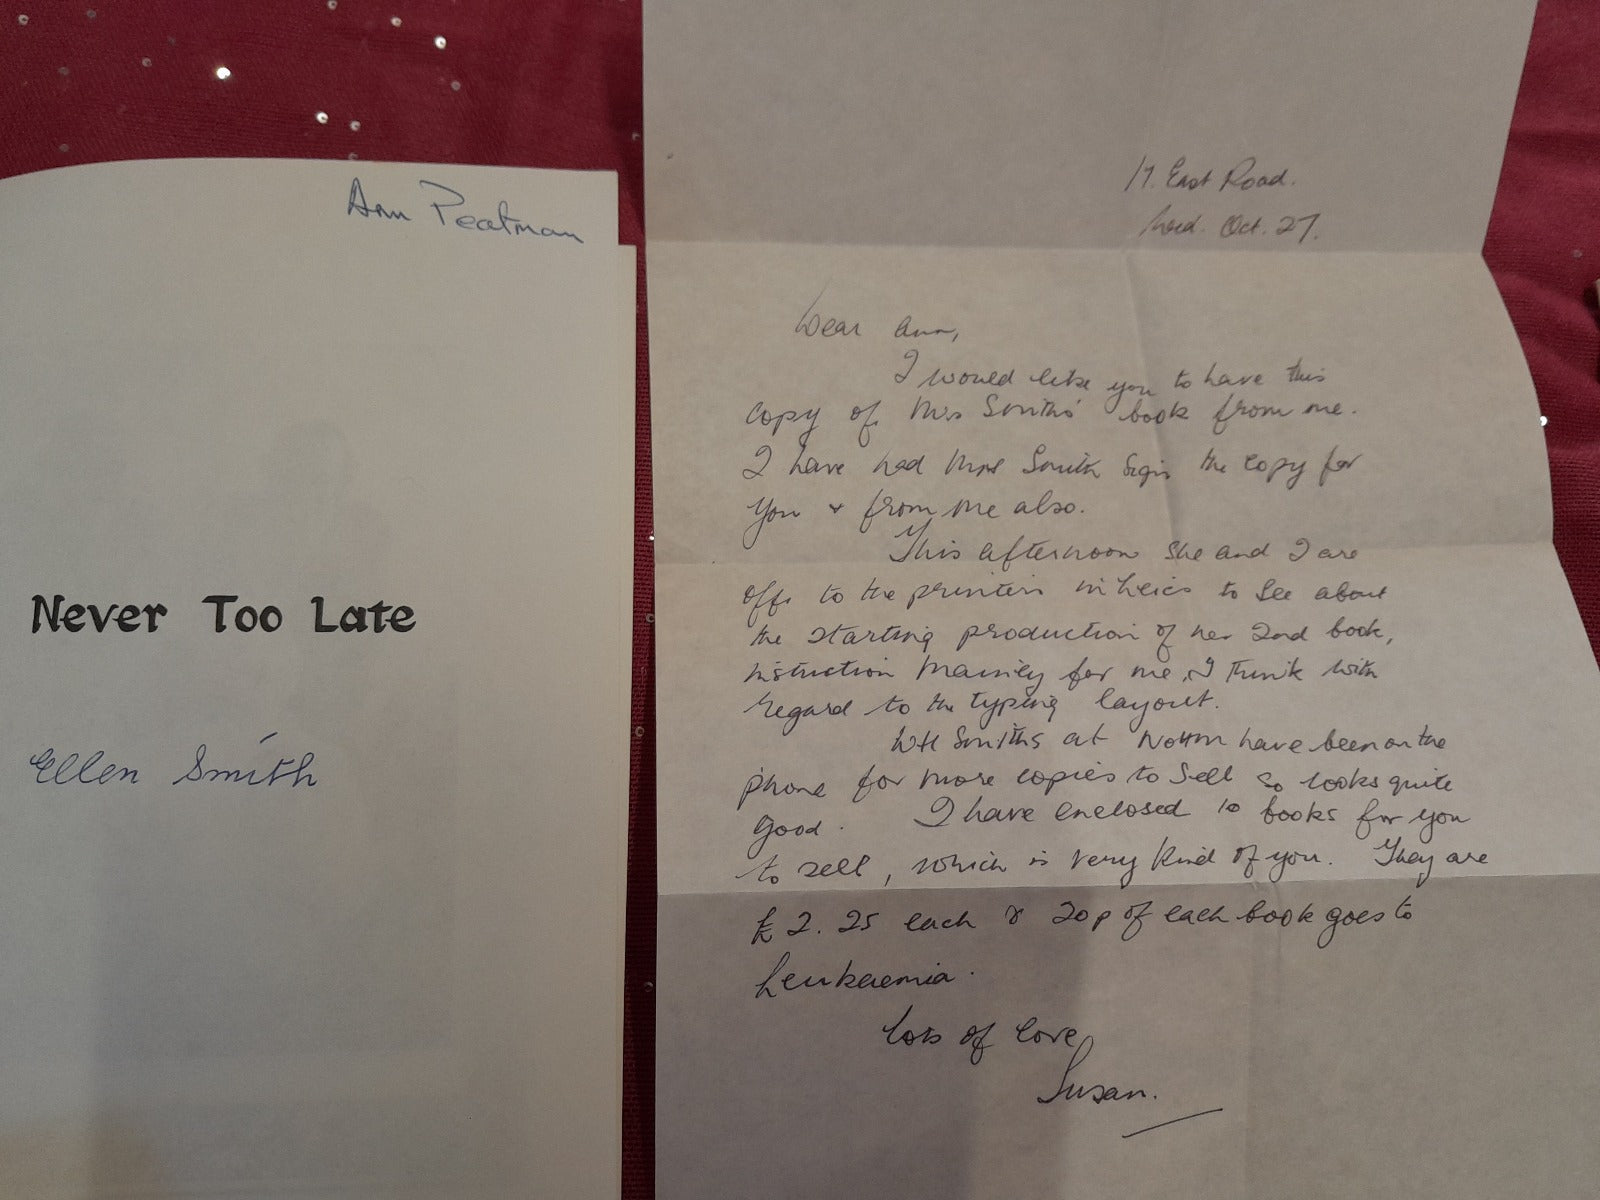 Ann Peatman
Never Too Late
Ellen Smith
17. East Road.
Wed. Oct. 27.
Dear Ann,
I would like you to have this
copy of Mrs Smiths' book from me.
I have had Mrs Smith sign the copy for
you & from me also.
This afternoon she and I are
off to the printers in Leics to see about
the starting production of her 2nd book,
instruction mainly for me, I think with
regard to the typing layout.
WH Smiths at Nottm have been on the
phone for more copies to sell so looks quite
good. I have enclosed 10 books for you
to sell, which is very kind of you. They are
£2.25 each & 20p of each book goes to
Leukaemia.
Lots of love
Susan.